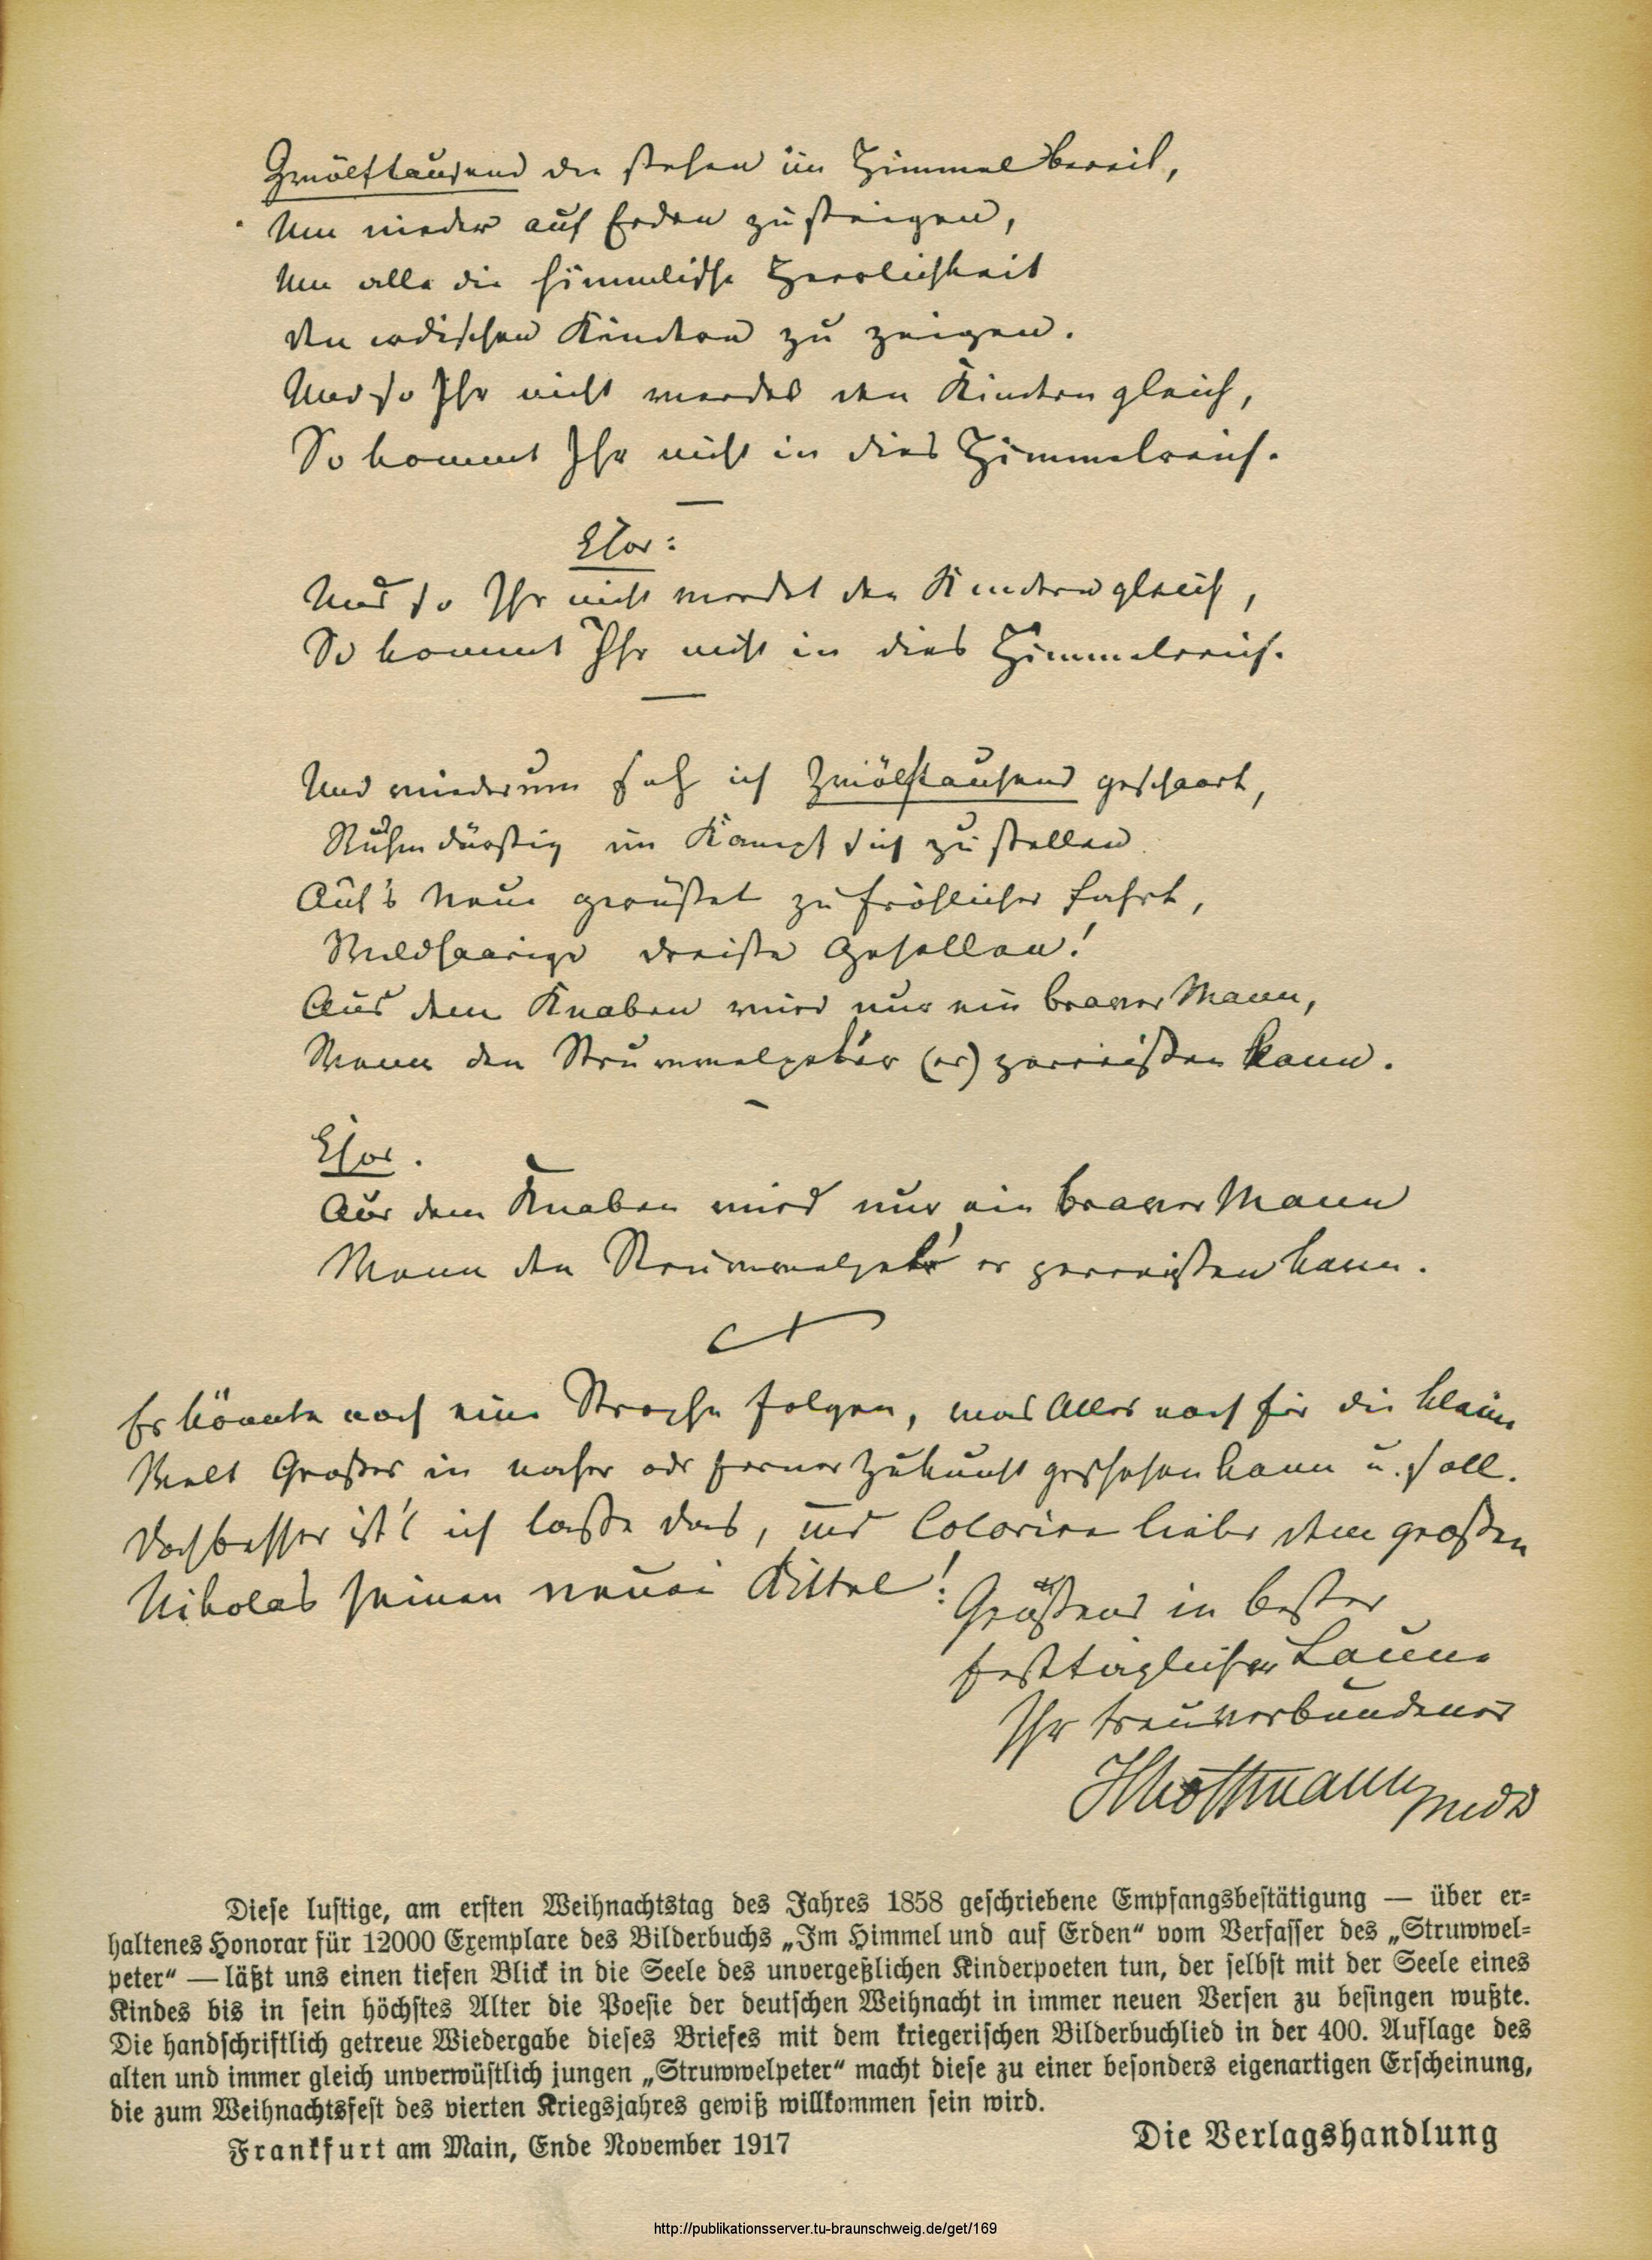 Zwölftausend die stehen im Himmel bereit,
Um nieder auf Erden zu steigen,
Um alle die himmlische Herrlichkeit
Den irdischen Kindern zu zeigen.
Und so Ihr nicht werdet den Kindern gleich,
So kommt Ihr nicht in dies Himmelreich.
Chor:
Und so Ihr nicht werdet den Kindern gleich,
So kommt Ihr nicht in dies Himmelreich.
Und wiederum sah ich Zwölftausend geschaart,
Ruhmdürstig im Kampf sich zu stellen
Auf's Neue gerüstet zu fröhlicher Fahrt,
Wildhaarige dreiste Gesellen!
Aus dem Knaben wird nur ein braver Mann,
Wenn den Struwwelpeter (er) zerreißen kann.
Chor.
Aus dem Knaben wird nur ein braver Mann
Wenn den Struwwelpet' er zerreißen kann.
Es könnte noch eine Strophe folgen, was Alles noch für die kleine
Welt Großes in naher oder ferner Zukunft geschehen kann u. soll.
Doch besser ist's ich lasse das, und colorire lieber dem großen
Nikolas seinen neuen Kittel!
Grüßend in bester
festtäglicher Laune
Ihr treuverbundener
H Hoffmann
Diese lustige, am ersten Weihnachtstag des Jahres 1858 geschriebene Empfangsbestätigung — über er-
haltenes Honorar für 12000 Exemplare des Bilderbuchs „Im Himmel und auf Erden“ vom Verfasser des „Struwwel-
peter“ — läßt uns einen tiefen Blick in die Seele des unvergeßlichen Kinderpoeten tun, der selbst mit der Seele eines
Kindes bis in sein höchstes Alter die Poesie der deutschen Weihnacht in immer neuen Versen zu besingen wußte.
Die handschriftlich getreue Wiedergabe dieses Briefes mit dem kriegerischen Bilderbuchlied in der 400. Auflage des
alten und immer gleich unverwüstlich jungen „Struwwelpeter“ macht diese zu einer besonders eigenartigen Erscheinung,
die zum Weihnachtsfest des vierten Kriegsjahres gewiß willkommen sein wird.
Frankfurt am Main, Ende November 1917
Die Verlagshandlung
http://publikationsserver.tu-braunschweig.de/get/169